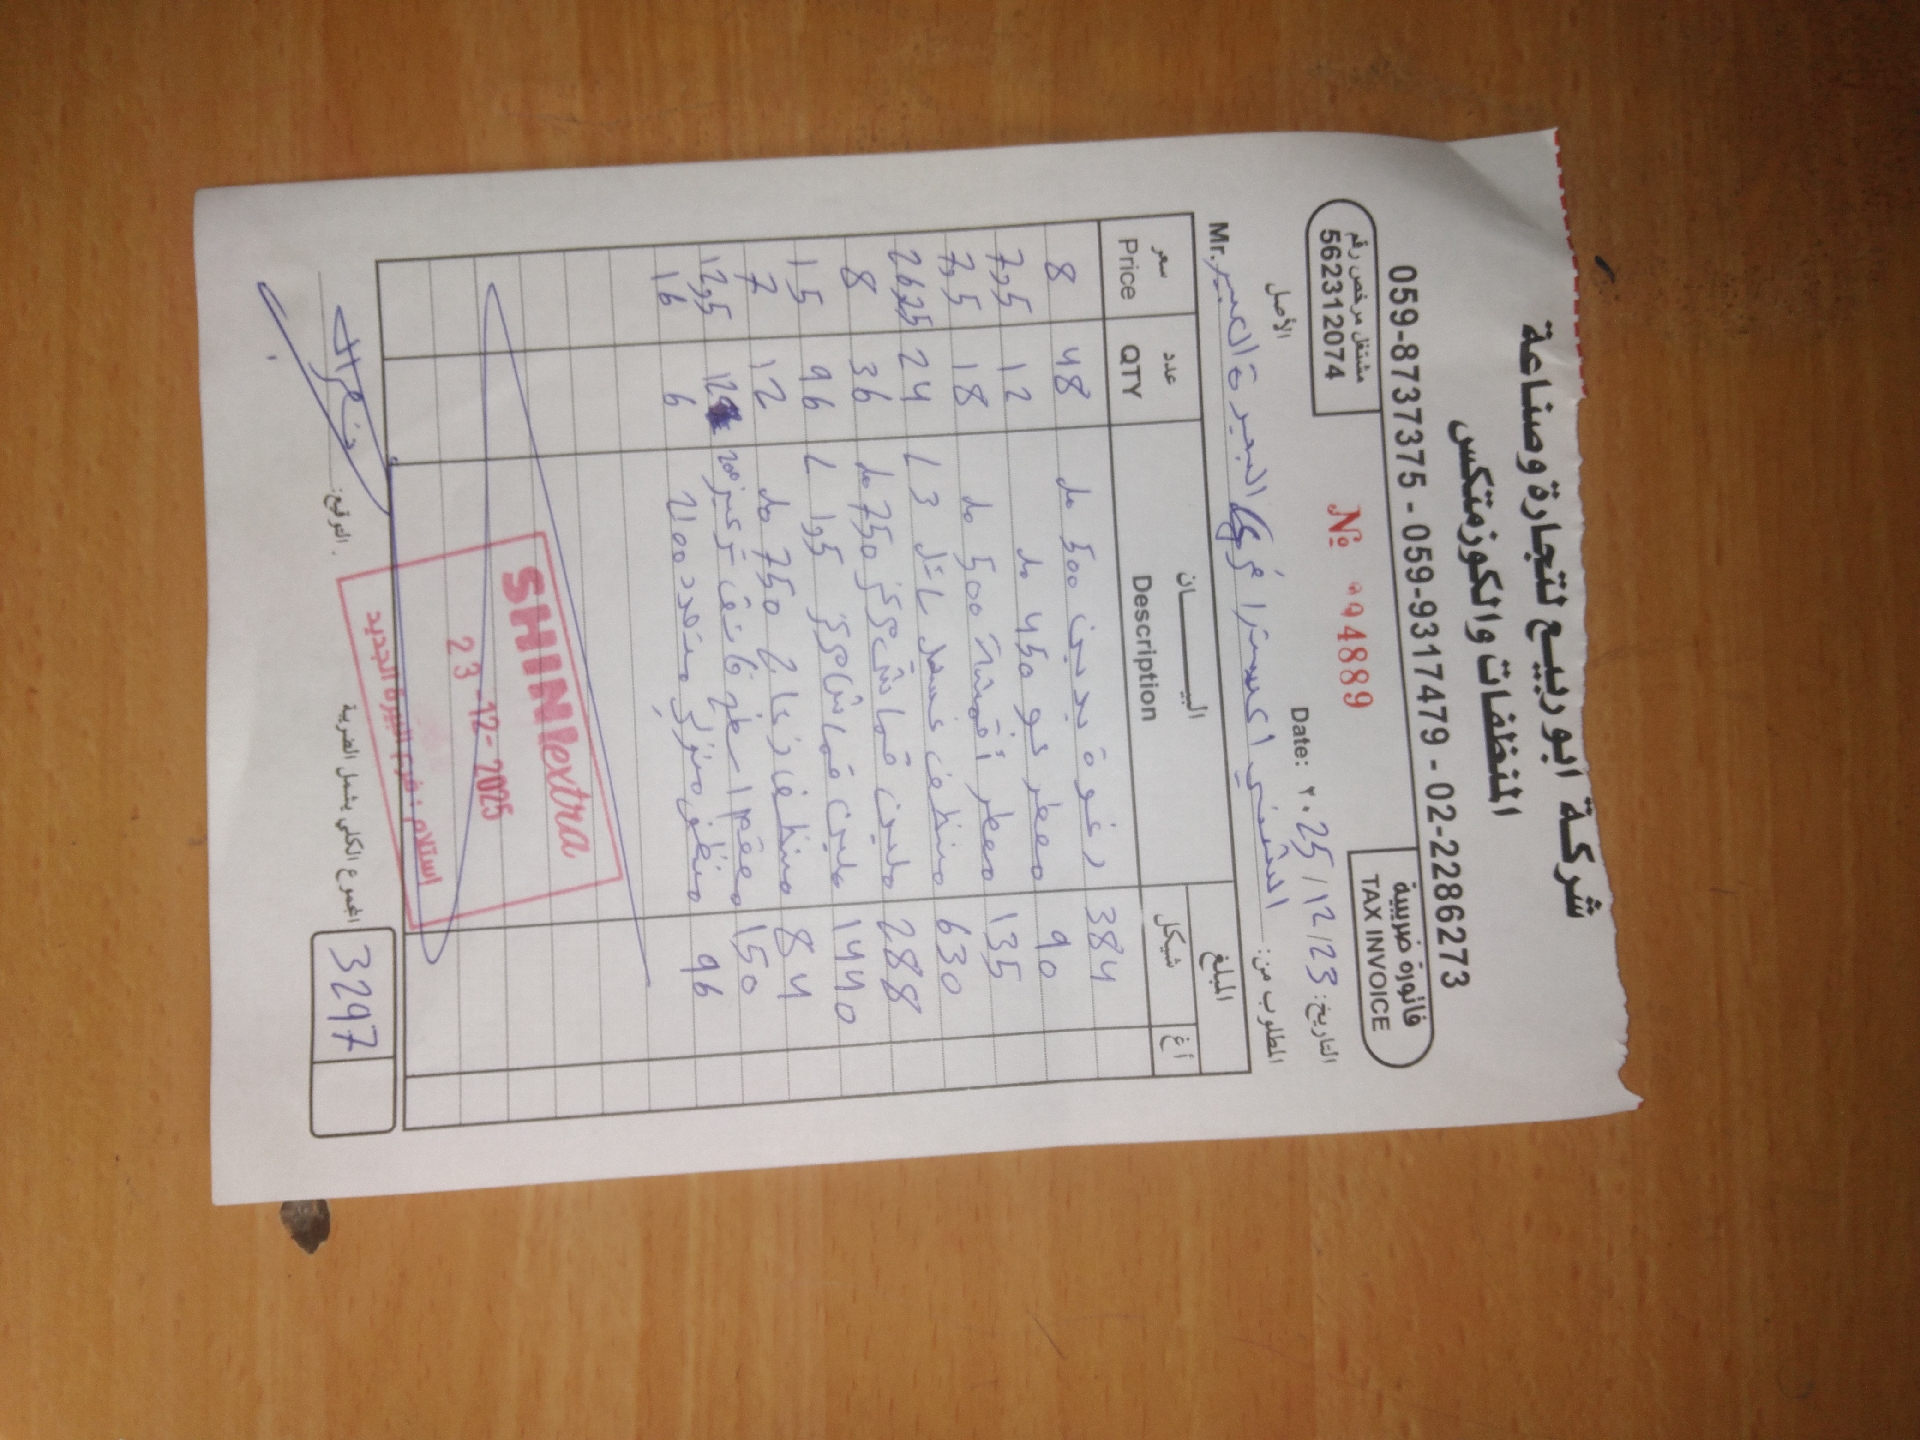 شركة ابو ربيع لتجارة وصناعة
المنظفات والكوزمتكس
059-8737375 - 059-9317479 - 02-2286273
مشتغل مرخص رقم
562312074
فاتورة ضريبية
TAX INVOICE
الأصل
№ 004889
التاريخ: 23/12/2025 Date:
المطلوب من: الشني اكسترا فرع البيرة Mr.
المبلغ البيــــان عدد سعر
شيكل أغ Description QTY Price
384 رغوة يدين 500 مل 48 8
90 معطر جو 450 مل 12 7,5
135 معطر أقمشة 500 مل 18 7,5
630 منظف غسيل سائل 3 L 24 26,25
288 ملين قماش مركز 750 مل 36 8
1440 ملين قماش مركز 1,5 L 96 15
84 منظف زجاج 750 مل 12 7
150 معقم اسطح فائق تركيز 12 12,5
96 منظف منزلي متعدد 6 16
SHINI extra
23-12-2025
استلام: فرع البيرة الجديد
المجموع الكلي يشمل الضريبة 3297
التوقيع: